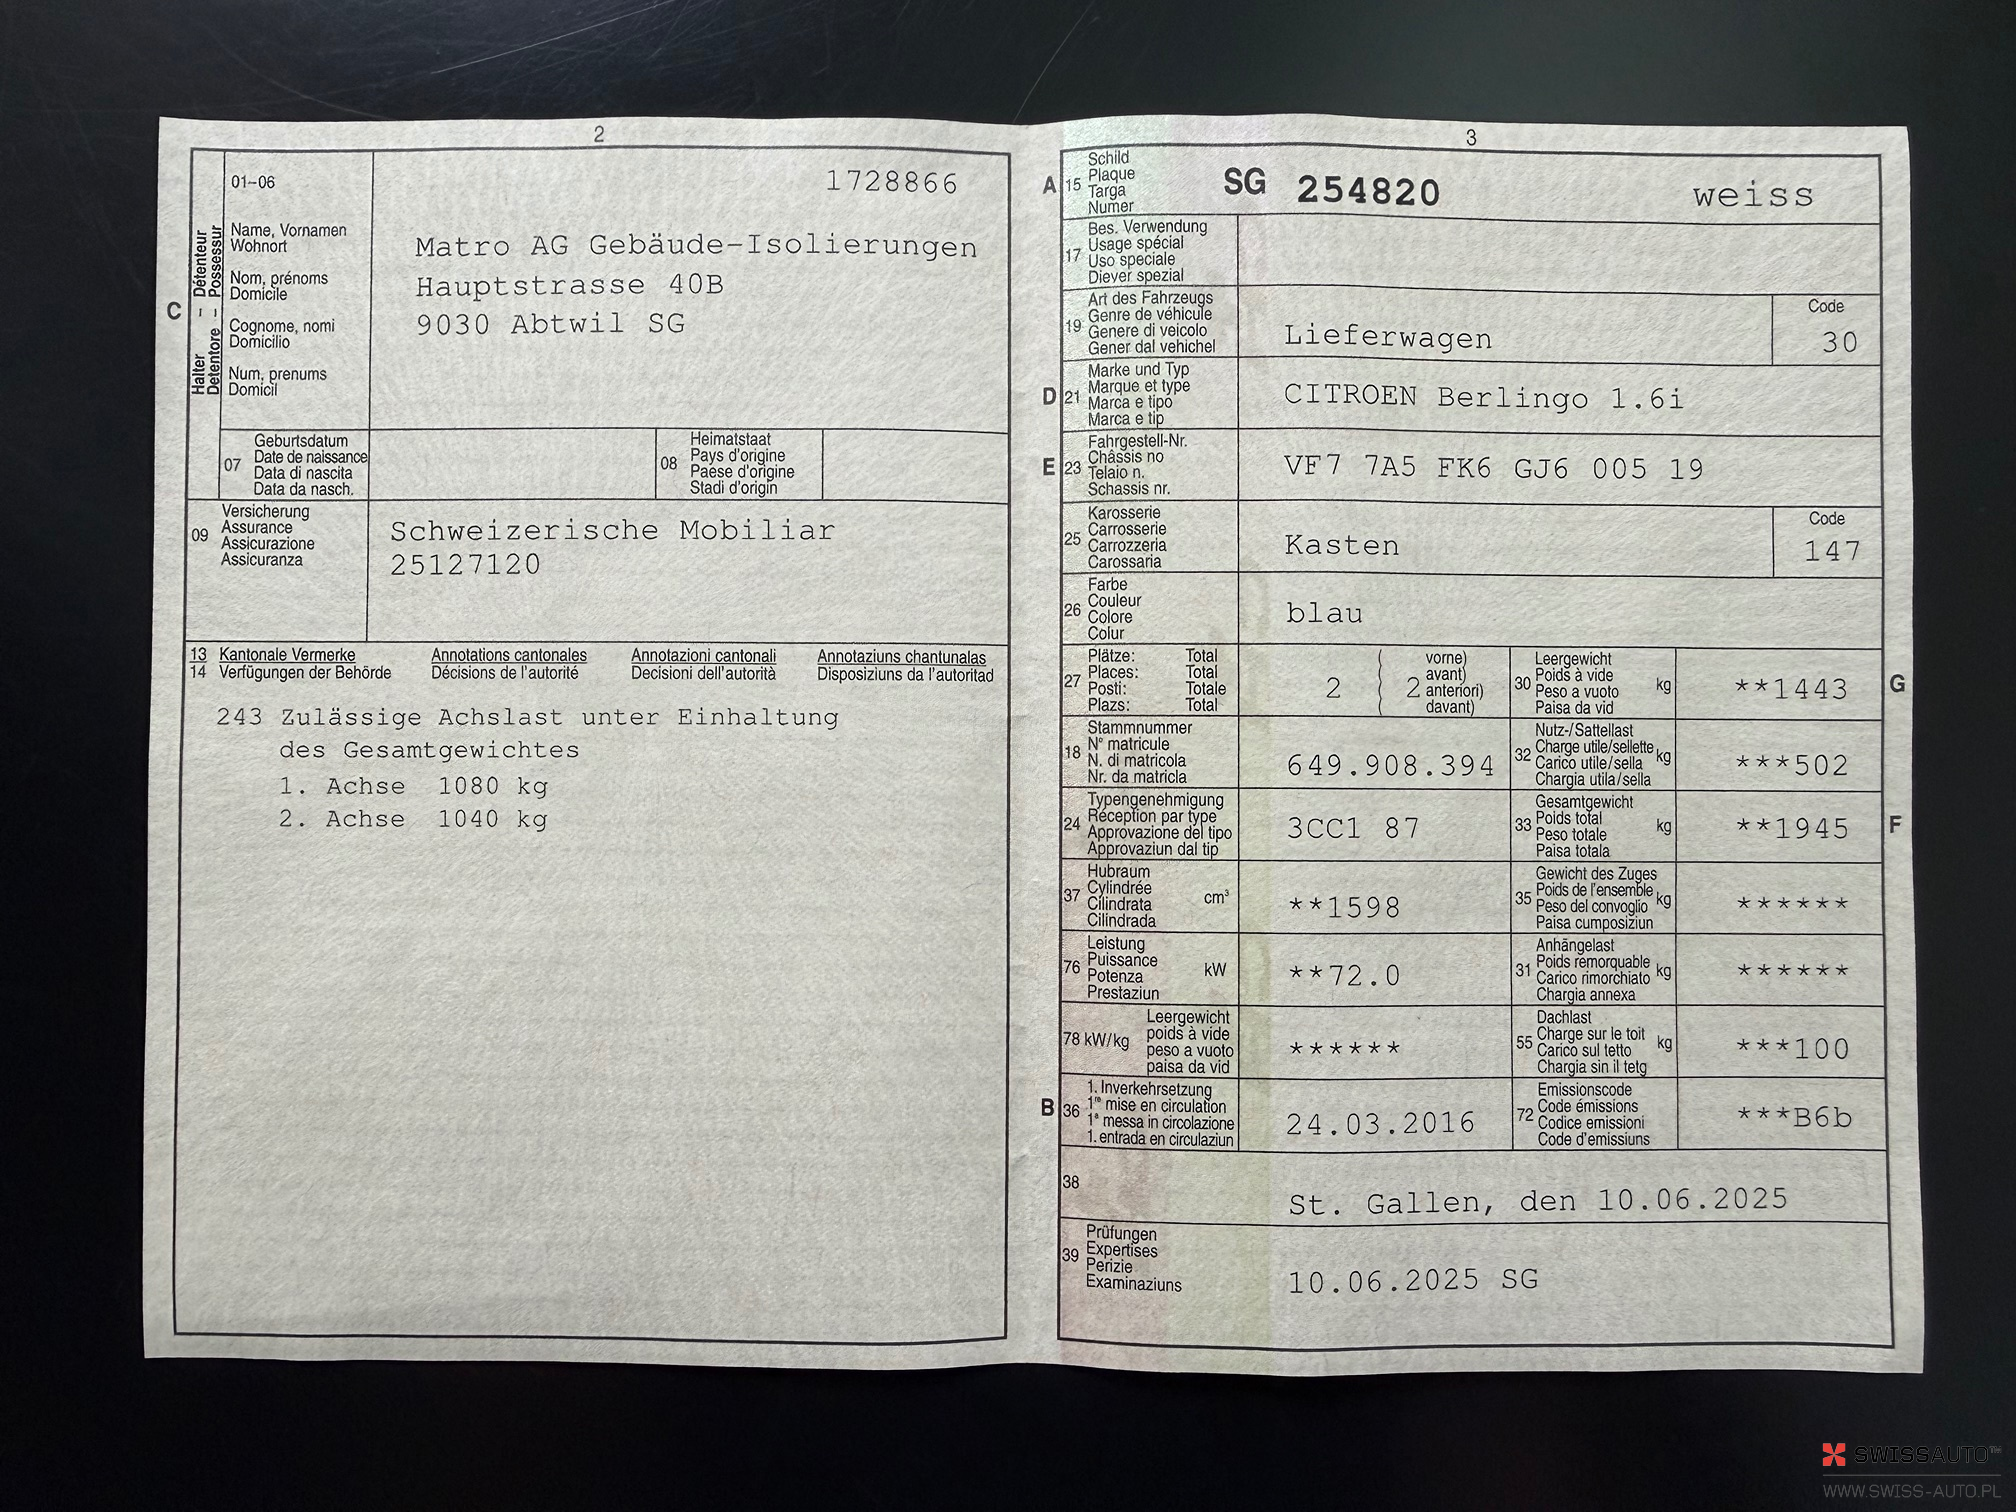 2
01–06
1728866
Halter – Détenteur
Detentore – Possessur
C
Name, Vornamen
Wohnort
Nom, prénoms
Domicile
Cognome, nomi
Domicilio
Num, prenums
Domicil
Matro AG Gebäude-Isolierungen
Hauptstrasse 40B
9030 Abtwil SG
07
Geburtsdatum
Date de naissance
Data di nascita
Data da nasch.
08
Heimatstaat
Pays d'origine
Paese d'origine
Stadi d'origin
09
Versicherung
Assurance
Assicurazione
Assicuranza
Schweizerische Mobiliar
25127120
13 Kantonale Vermerke Annotations cantonales Annotazioni cantonali Annotaziuns chantunalas
14 Verfügungen der Behörde Décisions de l'autorité Decisioni dell'autorità Disposiziuns da l'autoritad
243 Zulässige Achslast unter Einhaltung
des Gesamtgewichtes
1. Achse 1080 kg
2. Achse 1040 kg
3
A 15
Schild
Plaque
Targa
Numer
SG 254820 weiss
17
Bes. Verwendung
Usage spécial
Uso speciale
Diever spezial
19
Art des Fahrzeugs
Genre de véhicule
Genere di veicolo
Gener dal vehichel
Lieferwagen
Code
30
D 21
Marke und Typ
Marque et type
Marca e tipo
Marca e tip
CITROEN Berlingo 1.6i
E 23
Fahrgestell-Nr.
Châssis no
Telaio n.
Schassis nr.
VF7 7A5 FK6 GJ6 005 19
25
Karosserie
Carrosserie
Carrozzeria
Carossaria
Kasten
Code
147
26
Farbe
Couleur
Colore
Colur
blau
27
Plätze: Total
Places: Total
Posti: Totale
Plazs: Total
2 ( 2
vorne)
avant)
anteriori)
davant)
30
Leergewicht
Poids à vide
Peso a vuoto
Paisa da vid
kg
**1443
G
18
Stammnummer
N° matricule
N. di matricola
Nr. da matricla
649.908.394
32
Nutz-/Sattellast
Charge utile/sellette
Carico utile/sella
Chargia utila/sella
kg
***502
24
Typengenehmigung
Réception par type
Approvazione del tipo
Approvaziun dal tip
3CC1 87
33
Gesamtgewicht
Poids total
Peso totale
Paisa totala
kg
**1945
F
37
Hubraum
Cylindrée
Cilindrata
Cilindrada
cm³
**1598
35
Gewicht des Zuges
Poids de l'ensemble
Peso del convoglio
Paisa cumposiziun
kg
******
76
Leistung
Puissance
Potenza
Prestaziun
kW
**72.0
31
Anhängelast
Poids remorquable
Carico rimorchiato
Chargia annexa
kg
******
78 kW/kg
Leergewicht
poids à vide
peso a vuoto
paisa da vid
******
55
Dachlast
Charge sur le toit
Carico sul tetto
Chargia sin il tetg
kg
***100
B 36
1. Inverkehrsetzung
1re mise en circulation
1a messa in circolazione
1. entrada en circulaziun
24.03.2016
72
Emissionscode
Code émissions
Codice emissioni
Code d'emissiuns
***B6b
38
St. Gallen, den 10.06.2025
39
Prüfungen
Expertises
Perizie
Examinaziuns
10.06.2025 SG
SWISSAUTO™
WWW.SWISS-AUTO.PL